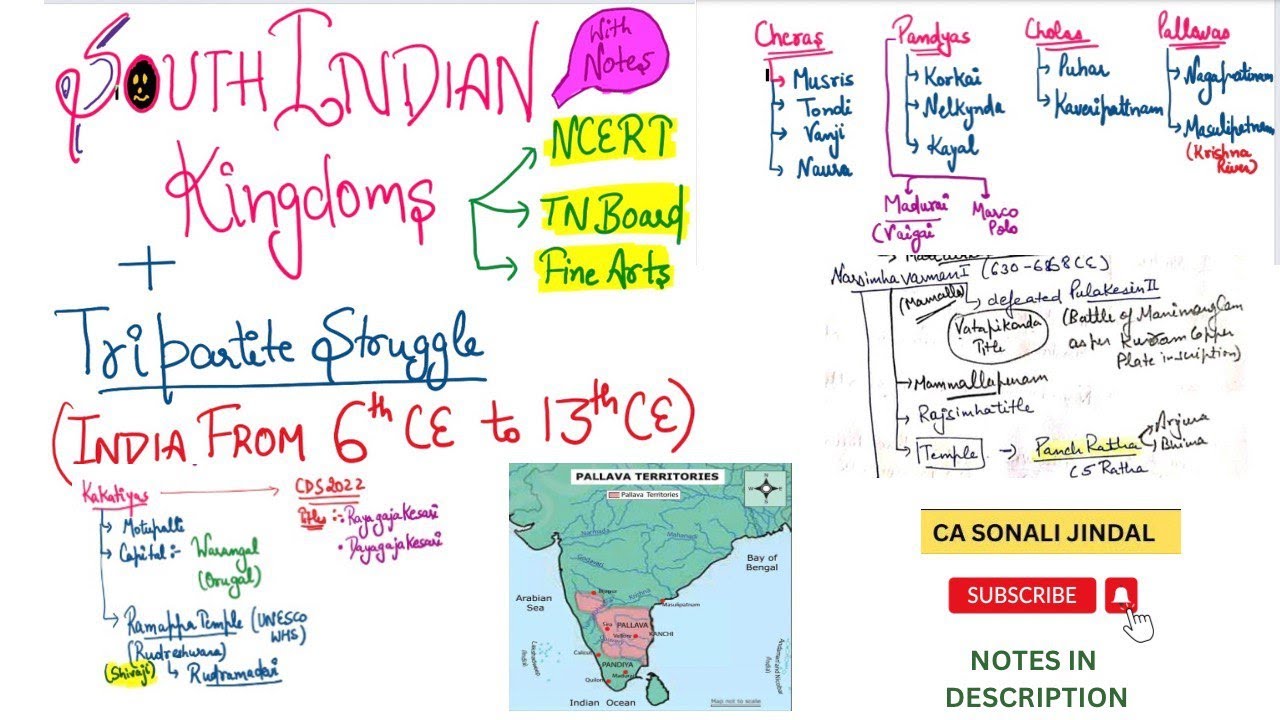 SOUTH INDIAN
Kingdoms
With
Notes
NCERT
TN Board
Fine Arts
+
Tripartite Struggle
(INDIA FROM 6th CE to 13th CE)
Cheras
Musris
Tondi
Vanji
Naura
Pandyas
Korkai
Nelkynda
Kayal
Madurai
(Vaigai
Marco
Polo
Cholas
Puhar
Kaveripattnam
Pallavas
Nagapatinam
Masulipatnam
(Krishna
River)
Narsimhavarman I (630-668CE)
(Mamalla)
defeated Pulakesin II
(Battle of Manimanglam
as per Kurram Copper
Plate inscription)
Vatapikonda
Title
Mammallapuram
Rajsimha title
Temple → Panch Ratha
(5 Ratha
Arjuna
Bhima
Kakatiyas
CDS 2022
Motupalli
Capital:- Warangal
(Orugal)
Titles :- Rayagajakesari
• Dayagajakesari
Ramappa Temple (UNESCO
WHS)
(Rudreshwara)
(Shivaji)
Rudramadevi
PALLAVA TERRITORIES
Pallava Territories
N
W E
S
Narmada
Mahanadi
Godavari
Bay of
Bengal
Arabian
Sea
Krishna
Masulipatnam
PALLAVA
Vellore
KANCHI
Calicut
PANDIYA
Madurai
Quilon
Lakshadweep
(India)
Andaman and Nicobar
(India)
Indian Ocean
Map not to scale
CA SONALI JINDAL
SUBSCRIBE
NOTES IN
DESCRIPTION